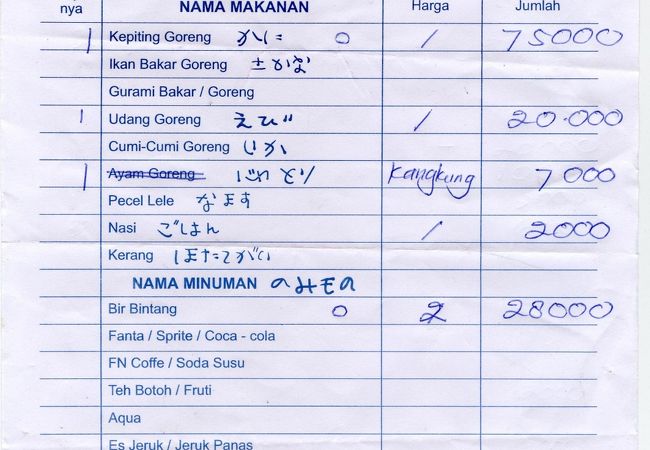 nya NAMA MAKANAN Harga Jumlah
1 Kepiting Goreng かに 0 1 75000
Ikan Bakar Goreng さかな
Gurami Bakar / Goreng
1 Udang Goreng えび 1 20.000
Cumi-Cumi Goreng いか
1 Ayam Goreng にわとり Kangkung 7000
Pecel Lele なまず
Nasi ごはん 1 2000
Kerang ほたてがい
NAMA MINUMAN のみもの
Bir Bintang 0 2 28000
Fanta / Sprite / Coca - cola
FN Coffe / Soda Susu
Teh Botoh / Fruti
Aqua
Es Jeruk / Jeruk Panas